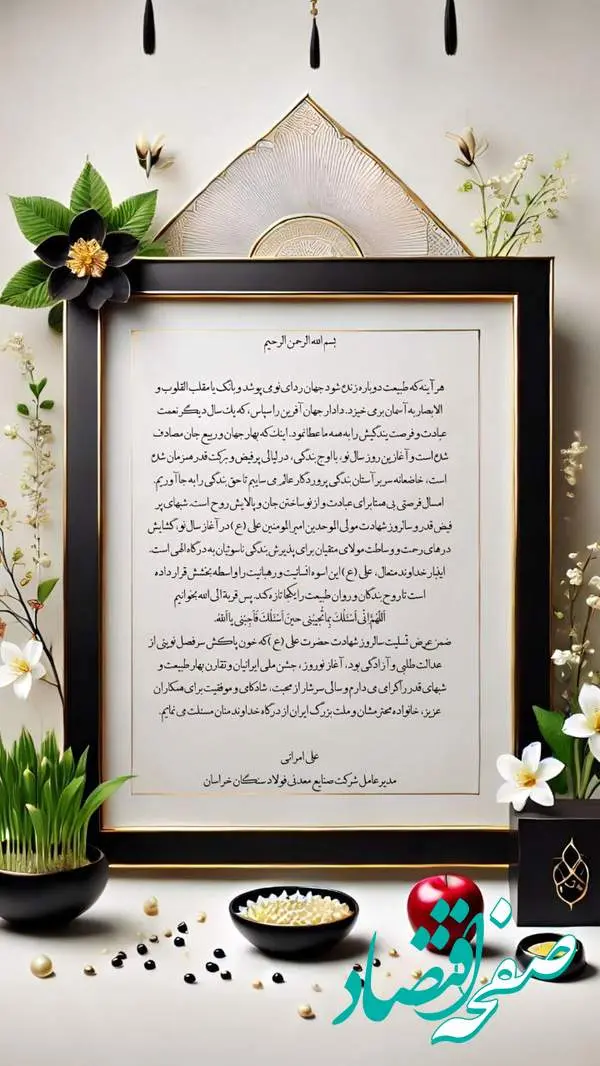 بسم الله الرحمن الرحیم
هر آینه که طبیعت دوباره زنده شود جهان ردای نو می پوشد و بانگ یا مقلب القلوب و
الابصار به آسمان برمی خیزد. دادار جهان آفرین را سپاس، که یک سال دیگر نعمت
عبادت و فرصت بندگیش را به همه ما عطا نمود. اینک که بهار جهان و ربیع جان مصادف
شده است و آغازین روز سال نو، با اوج بندگی، در لیالی پرفیض و برکت قدر همزمان شده
است، خاضعانه سر بر آستان بندگی پروردگار عالم می ساییم تا حق بندگی را به جا آوریم.
امسال فرصتی بی همتا برای عبادت و از نو ساختن جان و پالایش روح است. شبهای پر
فیض قدر و سالروز شهادت مولی الموحدین امیرالمومنین علی (ع) در آغاز سال نو، گشایش
درهای رحمت و وساطت مولای متقیان برای پذیرش بندگی ناسوتیان به درگاه الهی است.
اینبار خداوند متعال، علی (ع) این اسوه انسانیت و رهبانیت را واسطه بخشش قرار داده
است تا روح بندگان و روان طبیعت را یکجا تازه کند. پس قربة الی الله بخوانیم
اَللّهُمَّ اِنّی اَسْئَلُکَ بِما تُجیبُنی حینَ اَسْئَلُکَ فَاَجِبْنی یا اَللهُ.
ضمن عرض تسلیت سالروز شهادت حضرت علی (ع) که خون پاکش سرفصل نوینی از
عدالت طلبی و آزادگی بود، آغاز نوروز، جشن ملی ایرانیان و تقارن بهار طبیعت و
شبهای قدر را گرامی می دارم و سالی سرشار از محبت، شادکامی و موفقیت برای همکاران
عزیز، خانواده محترمشان و ملت بزرگ ایران از درگاه خداوند منان مسئلت می نمایم.
علی امرانی
مدیرعامل شرکت صنایع معدنی فولاد سنگان خراسان
صفحه اقتصاد